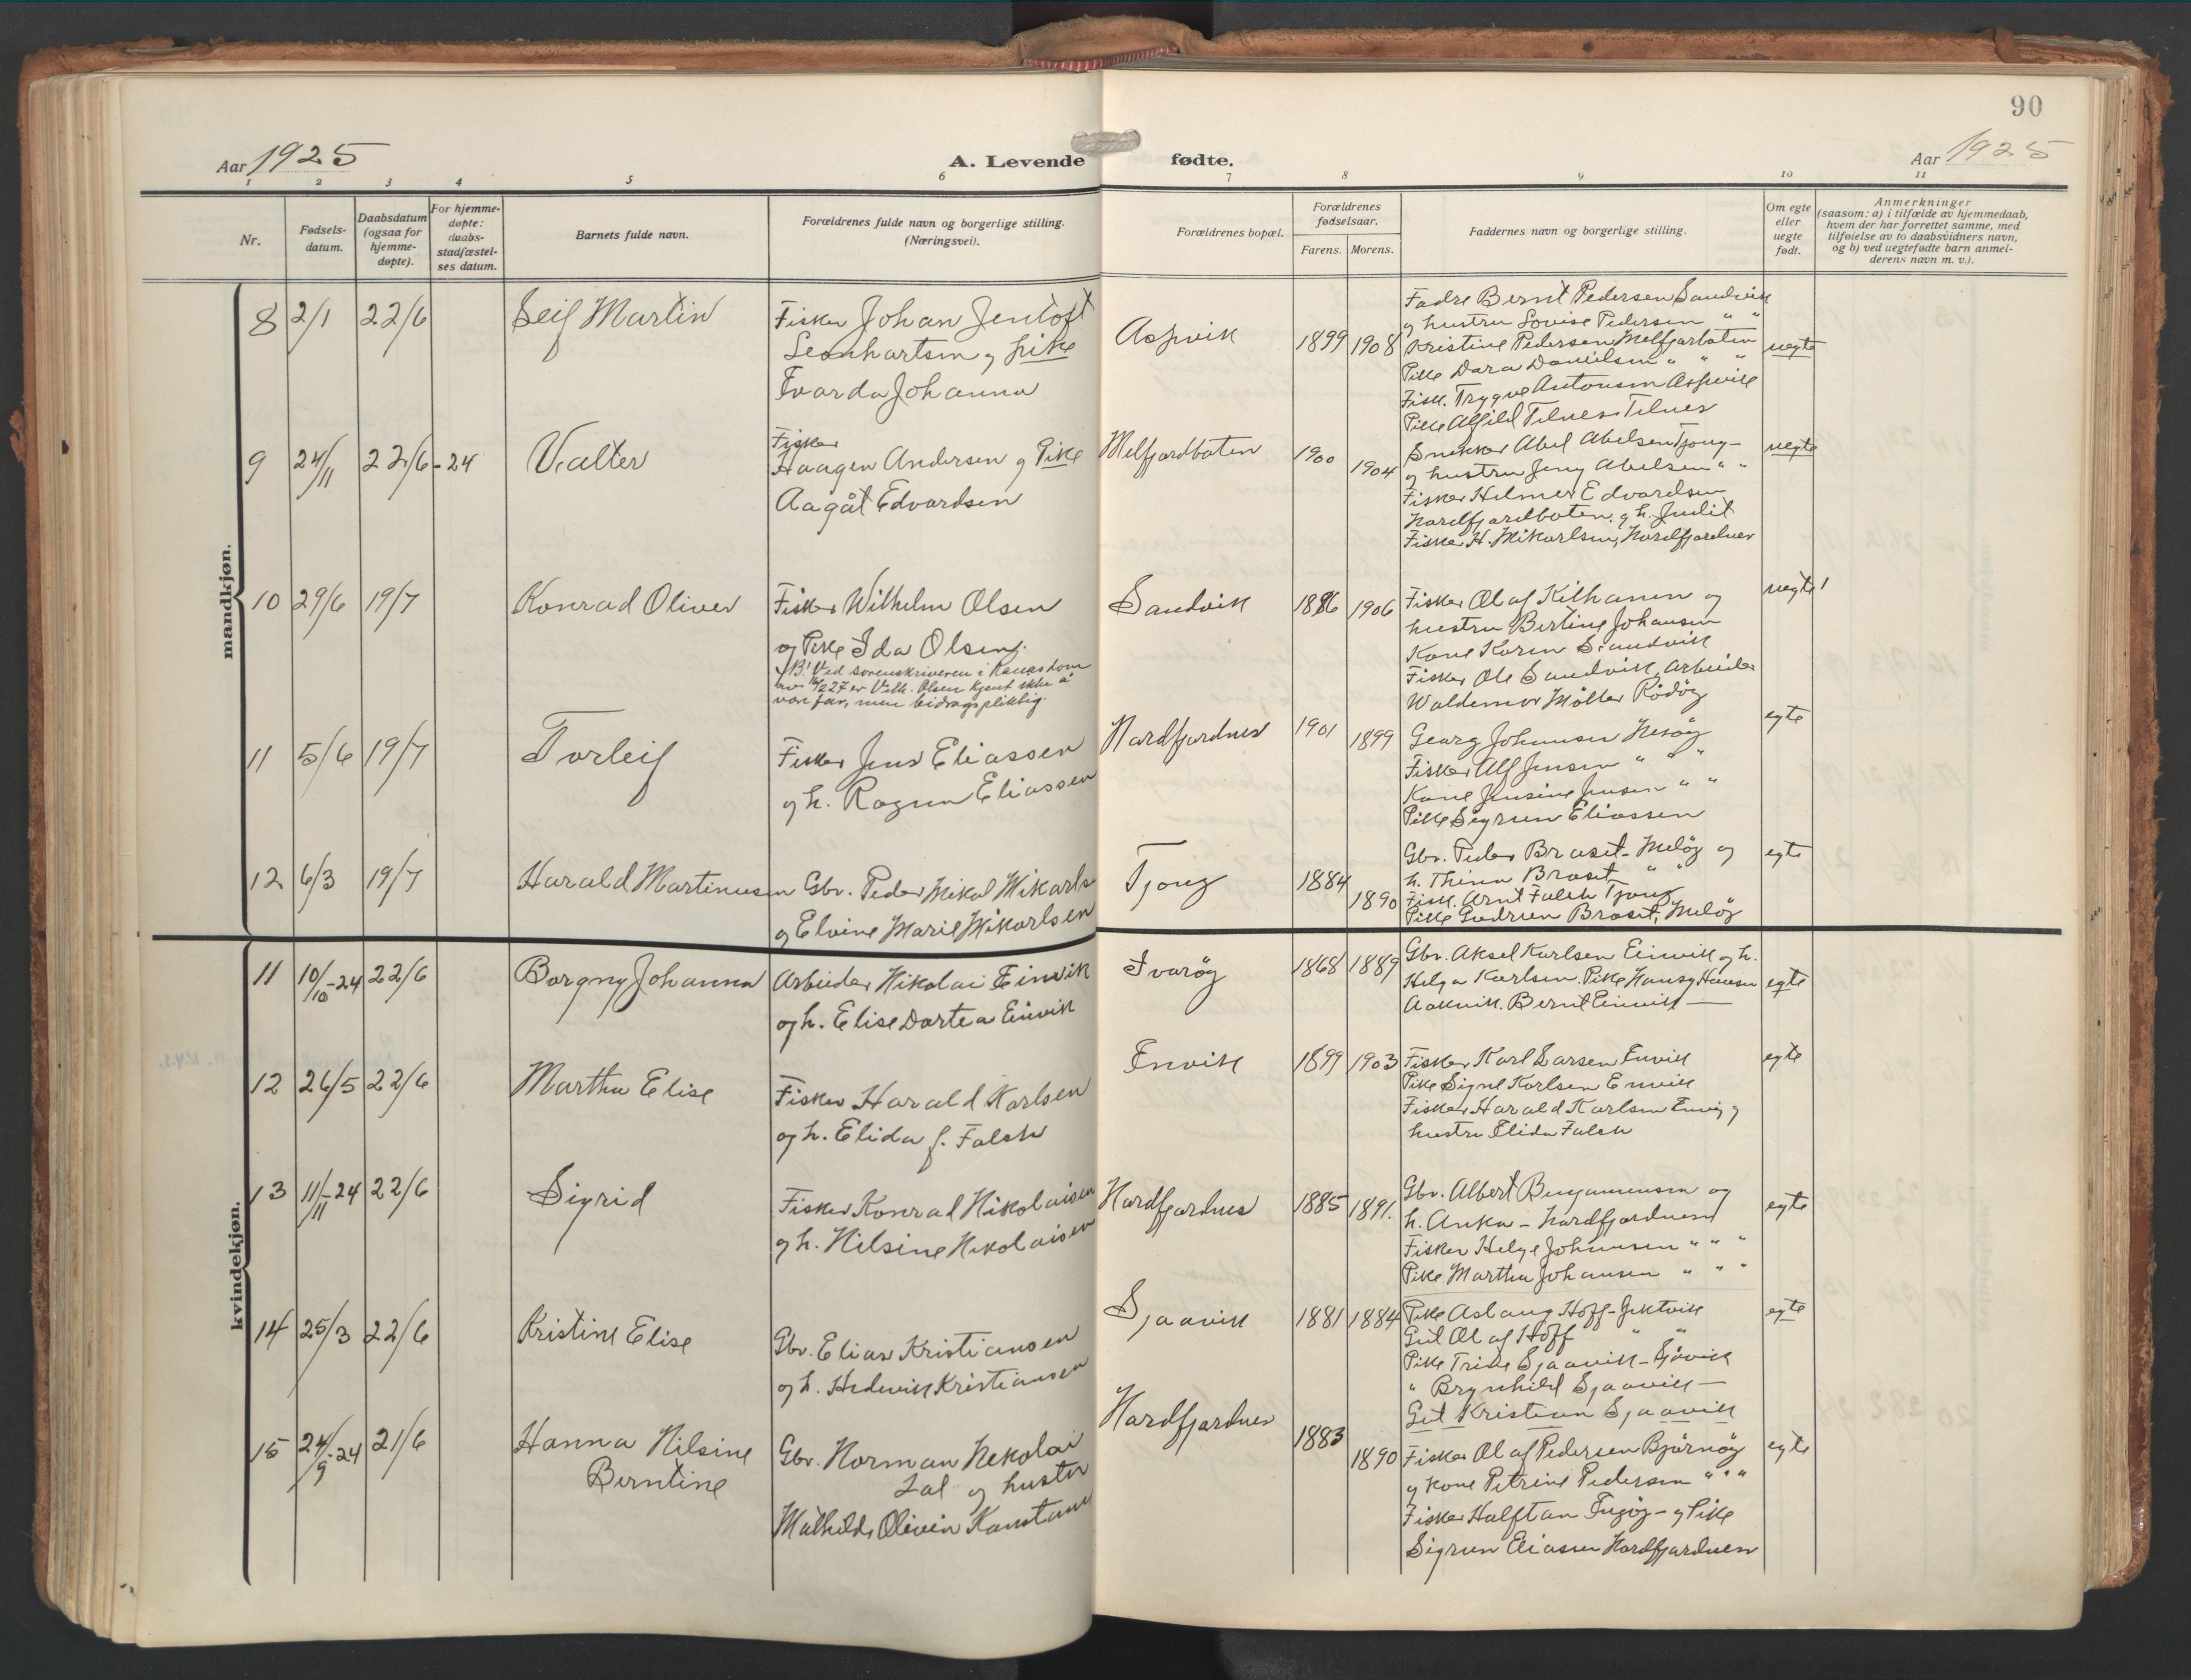 90
Aar 1925
A. Levende fødte.
Aar 1925
1 2 3 4 5 6 7 8 9 10 11
Nr.
Fødsels-
datum.
Daabsdatum
(ogsaa for
hjemme-
døpte).
For hjemme-
døpte:
daabs-
stadfæstel-
ses datum.
Barnets fulde navn.
Forældrenes fulde navn og borgerlige stilling.
(Næringsvei).
Forældrenes bopæl.
Forældrenes
fødselsaar.
Farens. Morens.
Faddernes navn og borgerlige stilling.
Om egte
eller
uegte
født.
Anmerkninger
(saasom: a) i tilfælde av hjemmedaab,
hvem der har forrettet samme, med
tilføielse av to daabsvidners navn,
og b) ved uegtefødte barn anmel-
derens navn m. v.).
mandkjøn.
8 2/1 22/6 Leif Martin
Fisker Johan Jentoft
Leonhartsen og pike
Tvarda Johanna
Aspvik 1899 1908
Fadre Bernt Pedersen Sandvik
og hustru Lovise Pedersen " "
Kristine Pedersen Melfjorboten
Pike Dara Danielsen " " "
Fisk. Trygve Antonsen Aspvik
Pike Alfild Telnes Telnes
uegte
9 24/11 22/6-24 Valter
Fisker
Haagen Andersen og Pike
Aagåt Edvardsen
Melfjordboten 1900 1904
Snekker Abel Abelsen Tjong-
og hustru Jeny Abelsen " "
Fisker Hilmer Edvardsen
Nordfjordboten og h. Judit
Fisker H. Mikarlsen, Nordfjordnes
uegte
10 29/6 19/7 Konrad Oliver
Fisker Wilhelm Olsen
og Pike Ida Olsen.
NB! Ved sorenskriveren i Ranas dom
av 16/2 27 er Vilh. Olsen kjent ikke å
være far, men bidragspliktig.
Sandvik 1886 1906
Fisker Olaf Kilhamn og
hustru Bertine Johansen
Kone Karen Sandvik
Fisker Ole Sandvik, Arbeider
Waldemar Møller Rødøy
uegte!
11 5/6 19/7 Torleif
Fisker Jens Eliassen
og h. Ragna Eliassen
Nordfjordnes 1901 1899
Georg Johansen Nesøy
Fisker Alf Jensen " " "
Kone Jensine Jensen " "
Pike Sigrun Eliassen
egte
12 6/3 19/7 Harald Martinusen
Gbr. Peder Mikal Mikarls
og Elvine Marie Mikarlsen
Tjong 1884 1890
Gbr. Peder Braset - Meløy og
h. Thina Braset " "
Fisk. Arnt Falch Tjong
Pike Gudrun Braset, Meløy
egte
kvindekjøn.
11 10/10-24 22/6 Borgny Johanna
Arbeider Nikolai Einvik
og h. Elise Dortea Einvik
Svarøy 1868 1889
Gbr. Aksel Karlsen Einvik og h.
Helga Karlsen. Pike Hansy Hansen
Aakvik. Bernt Einvik —
egte
12 26/5 22/6 Martha Elise
Fisker Harald Karlsen
og h. Elida f. Falch
Envik 1899 1903
Fisker Karl Larsen Envik
Pike Signe Karlsen Envik
Fisker Harald Karlsen Envig og
hustru Elida Falch
egte
13 11/11-24 22/6 Sigrid
Fisker Konrad Nikolaisen
og h. Nilsine Nikolaisen
Nordfjordnes 1885 1891.
Gbr. Albert Benjaminsen og
h. Anka - Nordfjordnes
Fisker Helge Johansen " " "
Pike Martha Johansen " " "
egte
14 25/3 22/6 Kristine Elise
Gbr. Elias Kristiansen
og h. Hedevik Kristiansen
Sjaavik 1881 1884
Pike Aslaug Hoff - Jektvik
Gut Olaf Hoff " "
Pike Trine Sjaavik - Sjåvik
" Brynhild Sjaavik —
Gut Kristian Sjaavik
egte
15 24/9-24 21/6 Hanna Nilsine
Berntine
Gbr. Norman Nekolai
Zal og hustru
Mathilde Olivin Konstanse
Nordfjordnes 1883 1890
Fisker Olaf Pedersen Bjørnøy
og kone Petrine Pedersen " " "
Fisker Halftan - og Pike
Sigrun Eliassen Nordfjordnes
egte